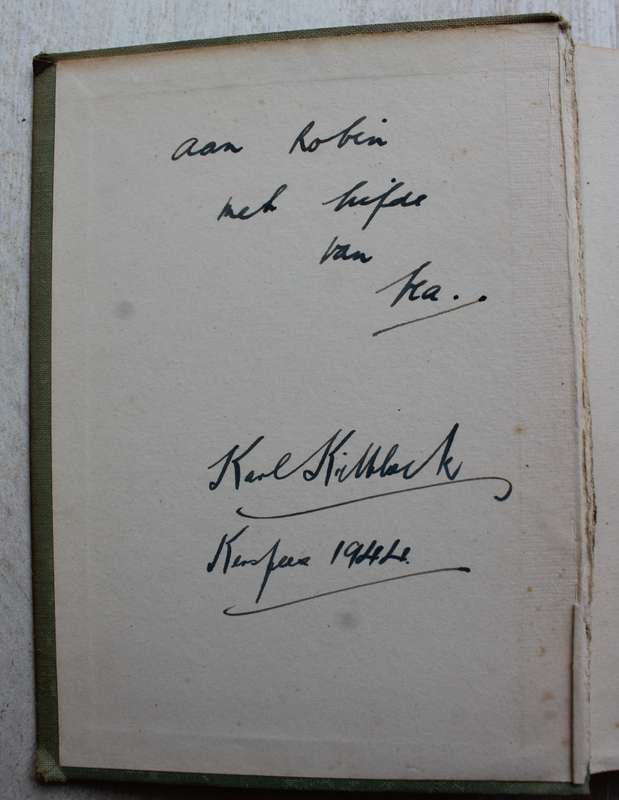 aan Robin
met liefde
van
Karl Kittlack
Kersfees 1944.